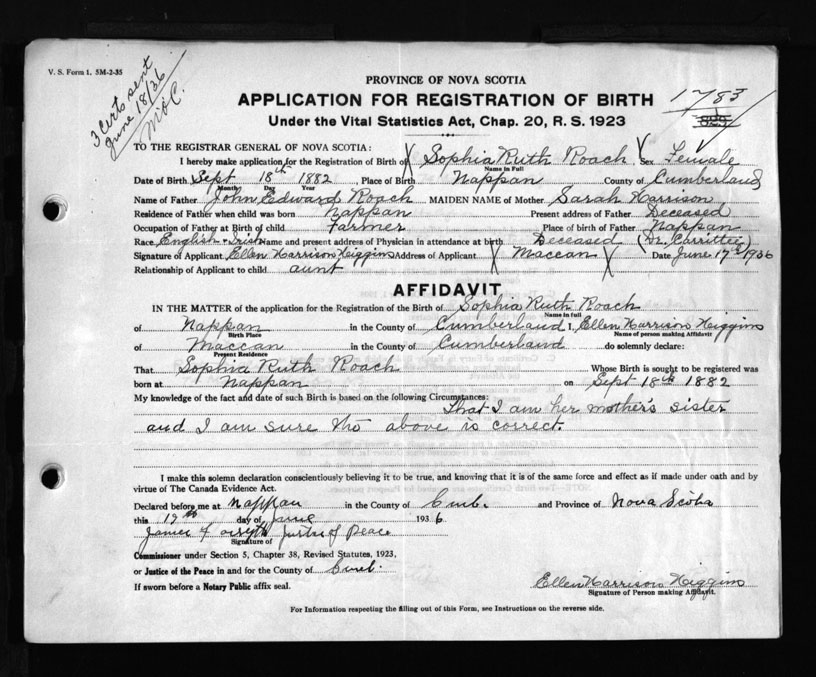 V. S. Form 1. 5M-2-35
3 Certs sent
June 18/36
PROVINCE OF NOVA SCOTIA
APPLICATION FOR REGISTRATION OF BIRTH
1783
Under the Vital Statistics Act, Chap. 20, R. S. 1923
TO THE REGISTRAR GENERAL OF NOVA SCOTIA:
I hereby make application for the Registration of Birth of Sophia Ruth Roach Sex Female
Name in Full
Date of Birth Sept 18th 1882 Place of Birth Nappan County of Cumberland
Month Day Year
Name of Father John Edward Roach MAIDEN NAME of Mother Sarah Harrison
Residence of Father when child was born Nappan Present address of Father Deceased
Occupation of Father at Birth of child Farmer Place of Birth of Father Nappan
Race English - Irish Name and present address of Physician in attendance at birth Deceased (Dr. Carrittee)
Signature of Applicant Ellen Harrison Higgins Address of Applicant Maccan Date June 17th 1936
Relationship of Applicant to child aunt
AFFIDAVIT
IN THE MATTER of the application for the Registration of the Birth of Sophia Ruth Roach
Name in full
of Nappan in the County of Cumberland I, Ellen Harrison Higgins
Birth Place Name of person making Affidavit
of Maccan in the County of Cumberland do solemnly declare:
Present Residence
That Sophia Ruth Roach Whose Birth is sought to be registered was
born at Nappan on Sept 18th 1882
My knowledge of the fact and date of such Birth is based on the following Circumstances:
That I am her mother's sister
and I am sure the above is correct.
I make this solemn declaration conscientiously believing it to be true, and knowing that it is of the same force and effect as if made under oath and by
virtue of The Canada Evidence Act.
Declared before me at Nappan in the County of Cumb. and Province of Nova Scotia
this 17th day of June 1936
James Forsyth Justice of Peace
Signature of
Commissioner under Section 5, Chapter 38, Revised Statutes, 1923,
or Justice of the Peace in and for the County of Cumb.
If sworn before a Notary Public affix seal.
Ellen Harrison Higgins
Signature of Person making Affidavit.
For Information respecting the filling out of this Form, see Instructions on the reverse side.